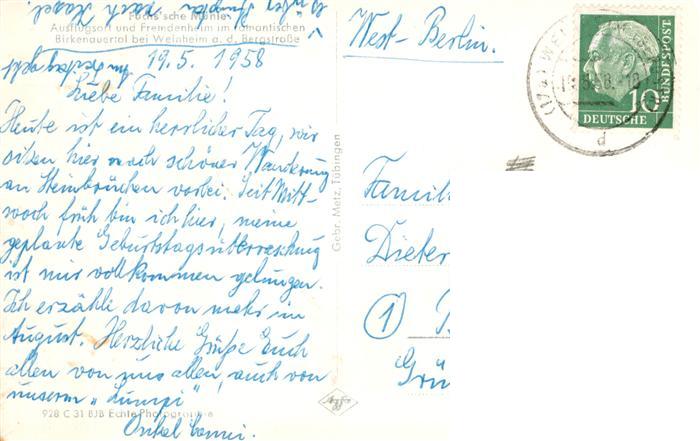 Fuchs'sche Mühle
Ausflugsort und Fremdenheim im romantischen
Birkenauertal bei Weinheim a. d. Bergstraße
19.5.1958
Liebe Familie!
Heute ist ein herrlicher Tag, wir
sitzen hier nach schöner Wanderung
an Steinbrüchen vorbei. Seit Mitt-
woch früh bin ich hier, meine
geplante Geburtstagsüberraschung
ist mir vollkommen gelungen.
Ich erzähle davon mehr im
August. Herzliche Grüße Euch
allen von uns allen, auch von
unserm „Lumpi"
Onkel
928 C 31 BJB Echte Photographie
Gebr. Metz, Tübingen
West-Berlin.
DEUTSCHE
BUNDESPOST
10
d
Famil
Dieter
1
Grü